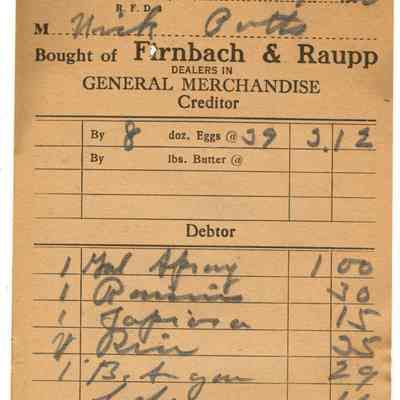 R. F. D.
M Nick Potts
Bought of Firnbach & Raupp
DEALERS IN
GENERAL MERCHANDISE
Creditor
By 8 doz. Eggs @ 39 3.12
By lbs. Butter @
Debtor
1 Gal Spray 1 00
1 Raisins 30
1 Tapioca 15
Rice 25
1 29